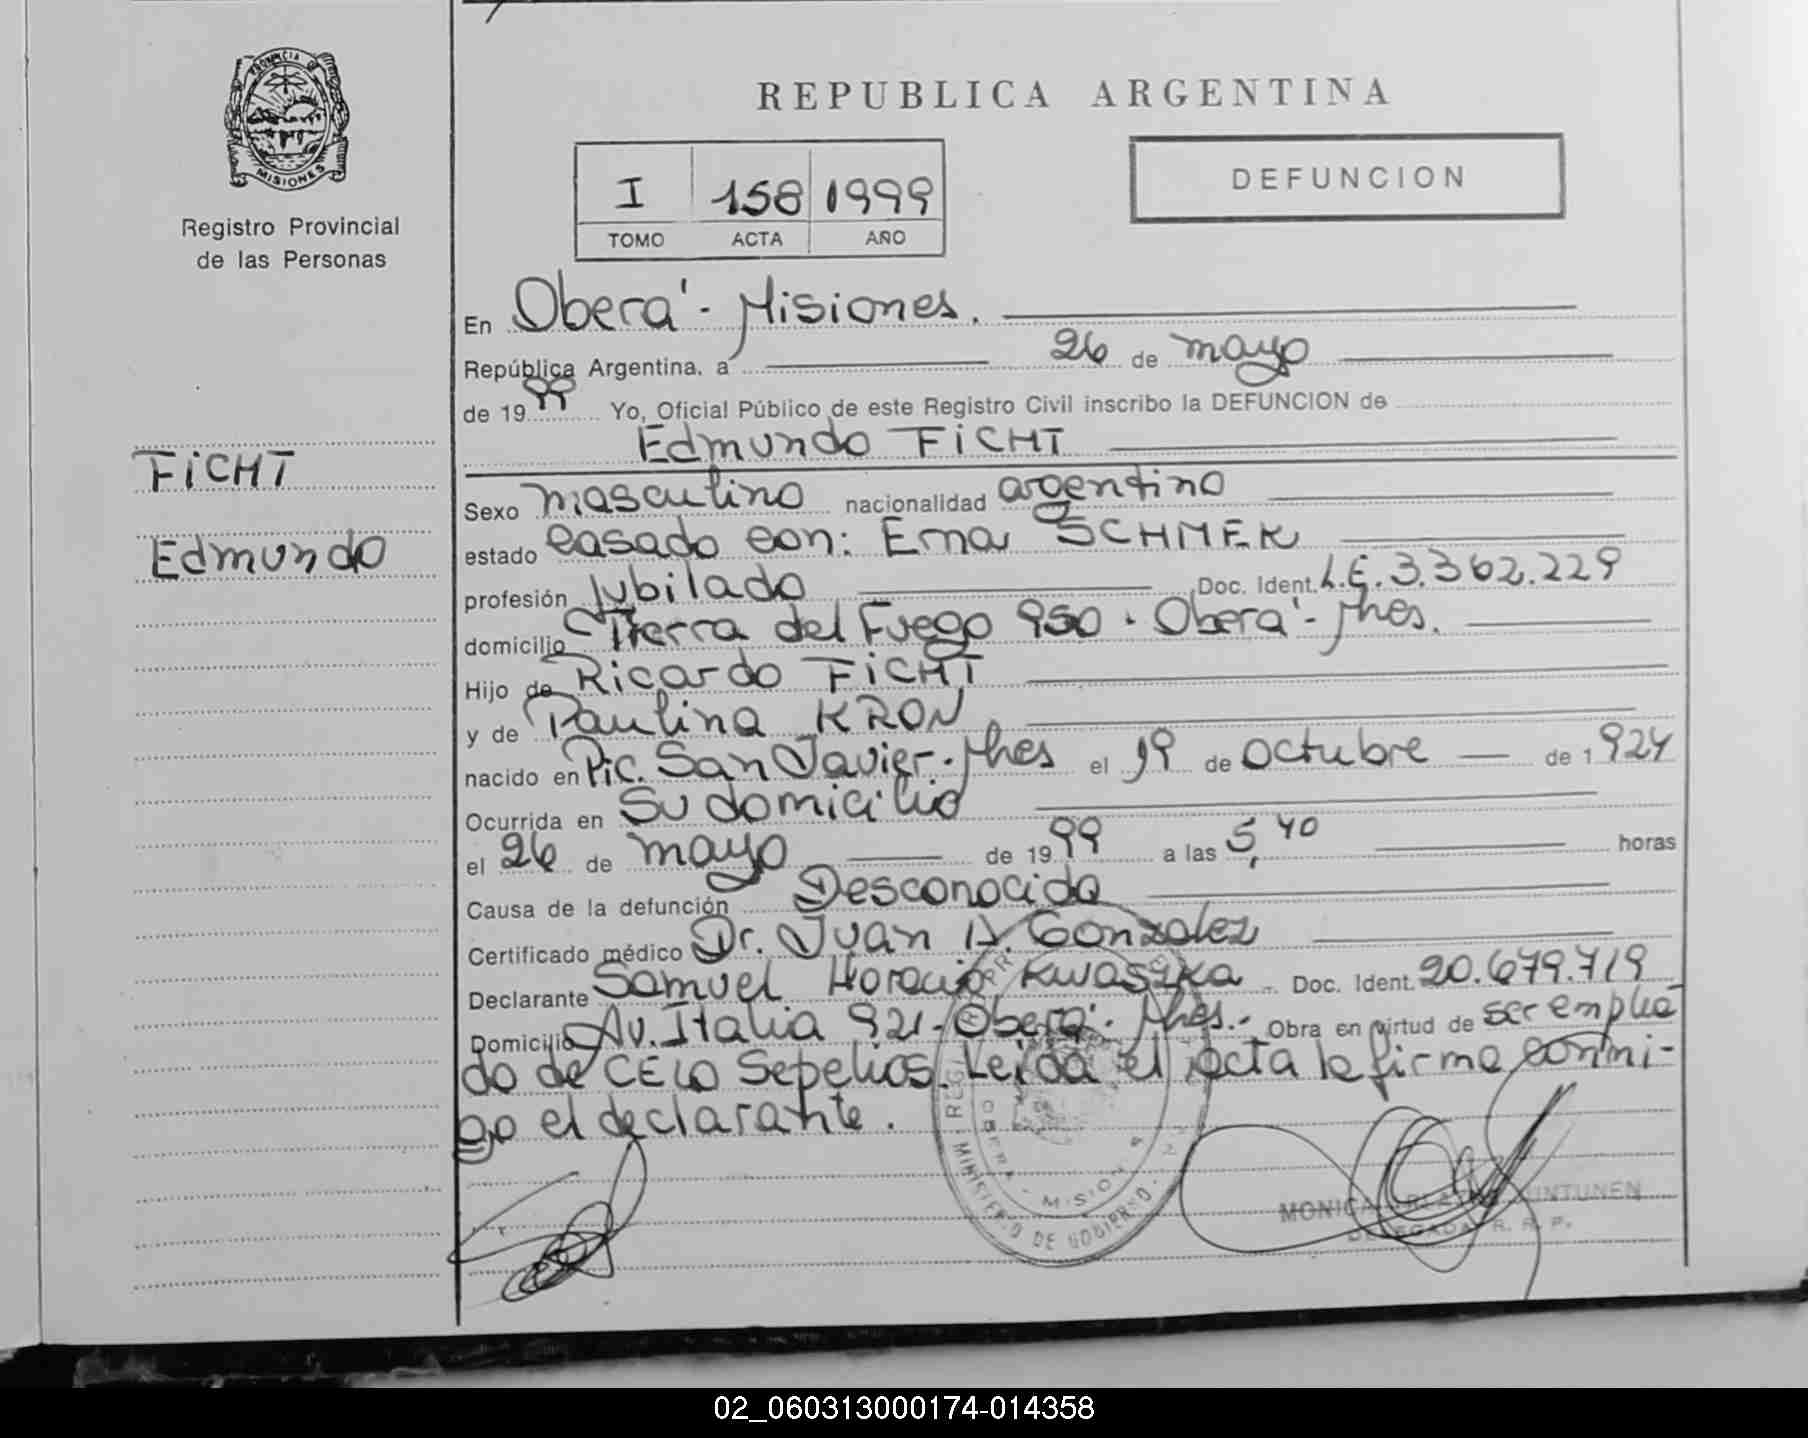 PROVINCIA DE
MISIONES
Registro Provincial
de las Personas
FiCHT
Edmundo
REPUBLICA ARGENTINA
I 158 1999
TOMO ACTA AÑO
DEFUNCION
En Oberá - Misiones.
República Argentina, a 26 de mayo
de 19 99 Yo, Oficial Público de este Registro Civil inscribo la DEFUNCION de
Edmundo FiCHT
Sexo masculino nacionalidad argentino
estado casado con: Erna SCHMEK
profesión Jubilado Doc. Ident. L.E. 3.362.229
domicilio Tierra del Fuego 950 - Oberá - Mnes.
Hijo de Ricardo FiCHT
y de Paulina KRON
nacido en Pic. San Javier - Mnes el 19 de Octubre de 1 924
Ocurrida en Su domicilio
el 26 de mayo de 19 99 a las 5,40 horas
Causa de la defunción Desconocida
Certificado médico Dr. Juan A. Gonzalez
Declarante Samuel Horacio Doc. Ident. 20.679.719
Domicilio Av. Italia 921 - Oberá - Mnes.- Obra en virtud de ser emplea
do de CELO Sepelios. Leída el acta la firma conmi-
go el declarante.
MINISTERIO DE GOBIERNO
OBERA - MISIONES
MONICA
DELEGADA R. R. P.
02_060313000174-014358